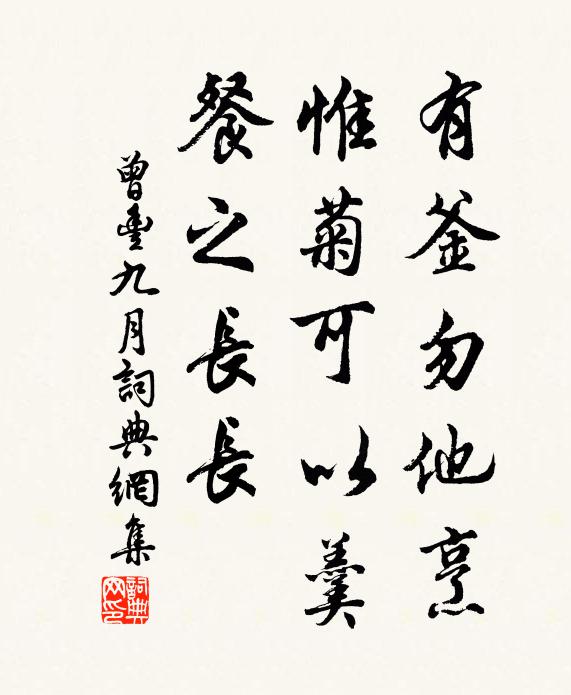 有釜勿他烹
惟菊可以羹
餐之長長
曾豐九月詞典網集
詞典網印